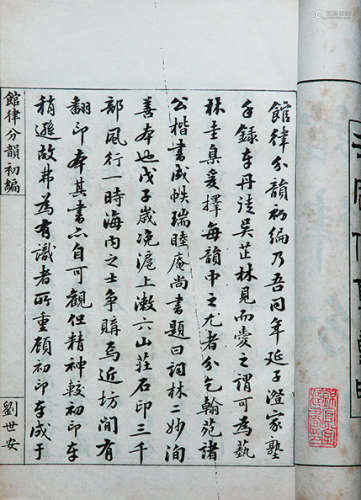 館律分韻初編乃吾同年延子澄家塾
手錄本丹徒吳芷林見而愛之謂可為藝
林圭臬爰擇每韻中之尤者分乞翰苑諸
公楷書成帙瑞睦庵尚書題曰詞林二妙洵
善本也戊子歲晚滬上漱六山莊石印三千
部風行一時海內之士爭購焉近坊間有
翻印本其書亦自可觀但精神較初印本
稍遜故弗為有識者所重顧初印本成于
館律分韻初編
劉世安